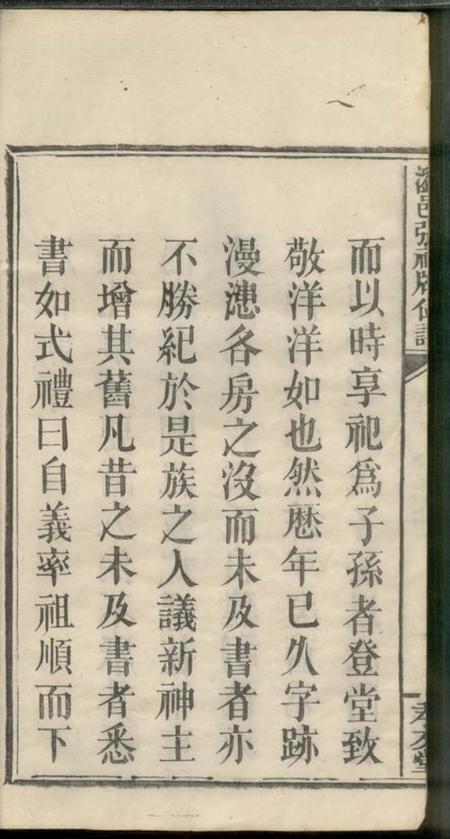 而以時享祀爲子孫者登堂致
敬洋洋如也然厯年已久字跡
漫漶各房之沒而未及書者亦
不勝紀於是族之人議新神主
而增其舊凡昔之未及書者悉
書如式禮曰自義率祖順而下